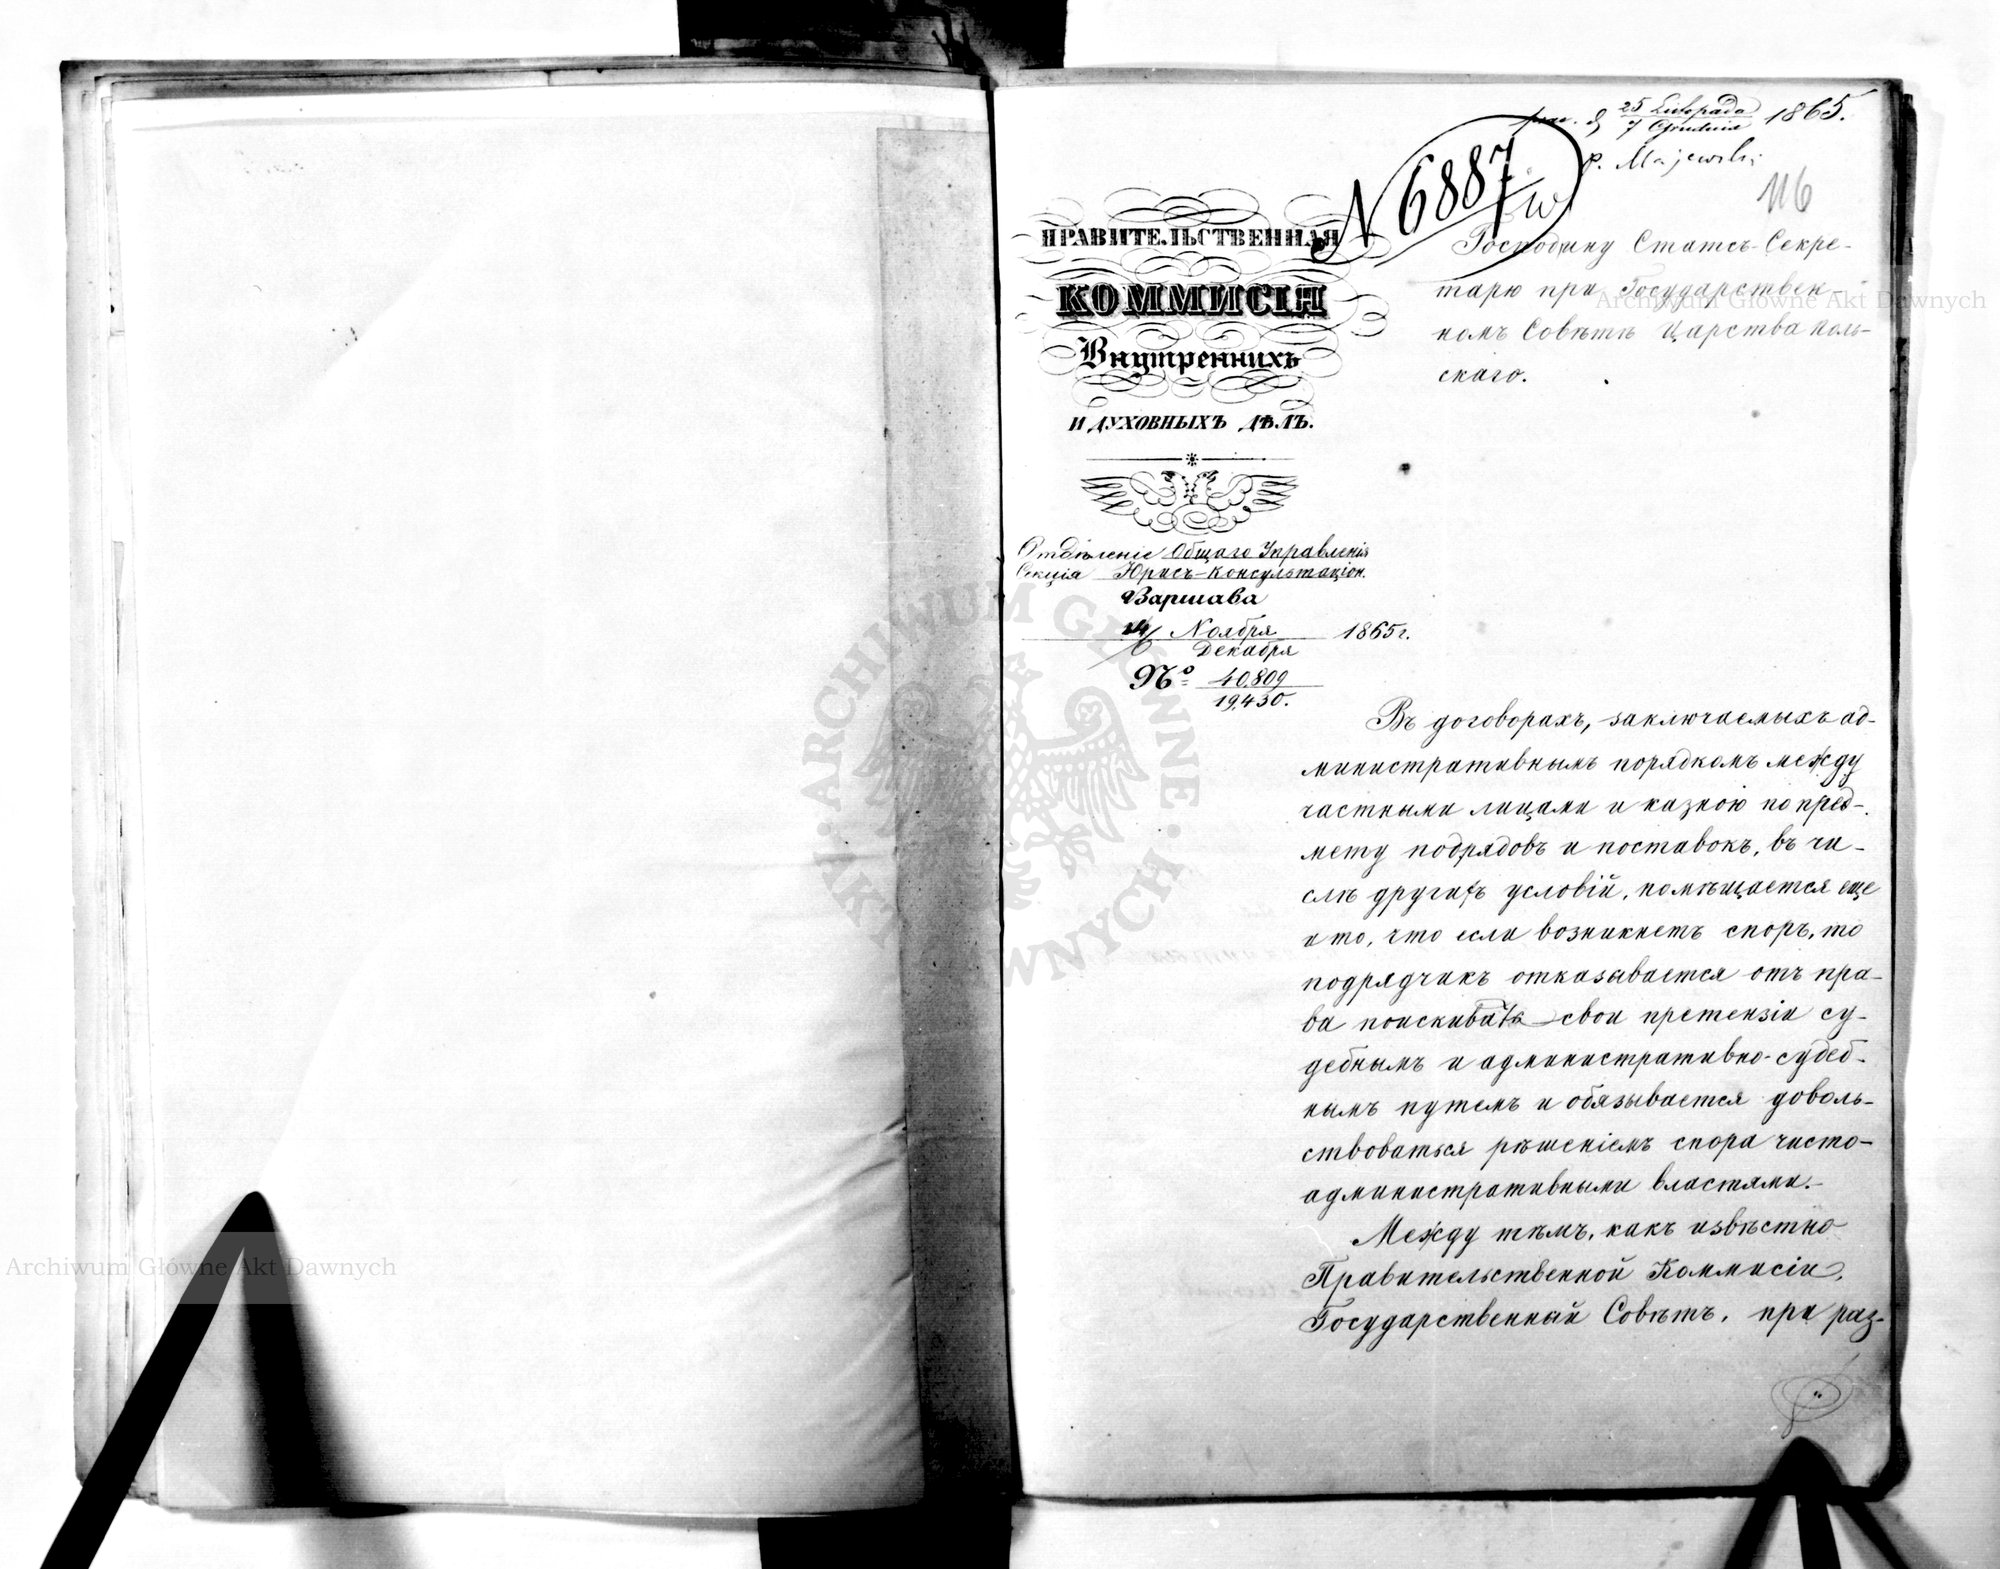 25 Listopada
7 Grudnia 1865.
P. Majewski
N 6887
116
ПРАВИТЕЛЬСТВЕННАЯ
КОММИСІЯ
Внутреннихъ
И ДУХОВНЫХЪ ДѢЛЪ.
Господину Статсъ-Секре-
тарю при Государствен-
номъ Совѣтѣ Царства Поль-
скаго.
Отдѣленіе Общаго Управленія
Секція Юрисъ-Консультаціон.
Варшава
24/6 Ноября 1865 г.
Декабря
№ 40,809
19,430.
Въ договорахъ, заключаемыхъ ад-
министративнымъ порядкомъ между
частными лицами и казною по пред-
мету подрядовъ и поставокъ, въ чи-
слѣ другихъ условій, помѣщается еще
и то, что если возникнетъ споръ, то
подрядчикъ отказывается отъ пра-
ва поискивать свои претензіи су-
дебнымъ и административно-судеб-
нымъ путемъ и обязывается доволь-
ствоваться рѣшеніемъ спора чисто-
административными властями.-
Между тѣмъ, какъ извѣстно
Правительственной Коммисіи,
Государственный Совѣтъ, при раз-
Archiwum Główne Akt Dawnych
Archiwum Główne Akt Dawnych
ARCHIWUM GŁÓWNE AKT DAWNYCH